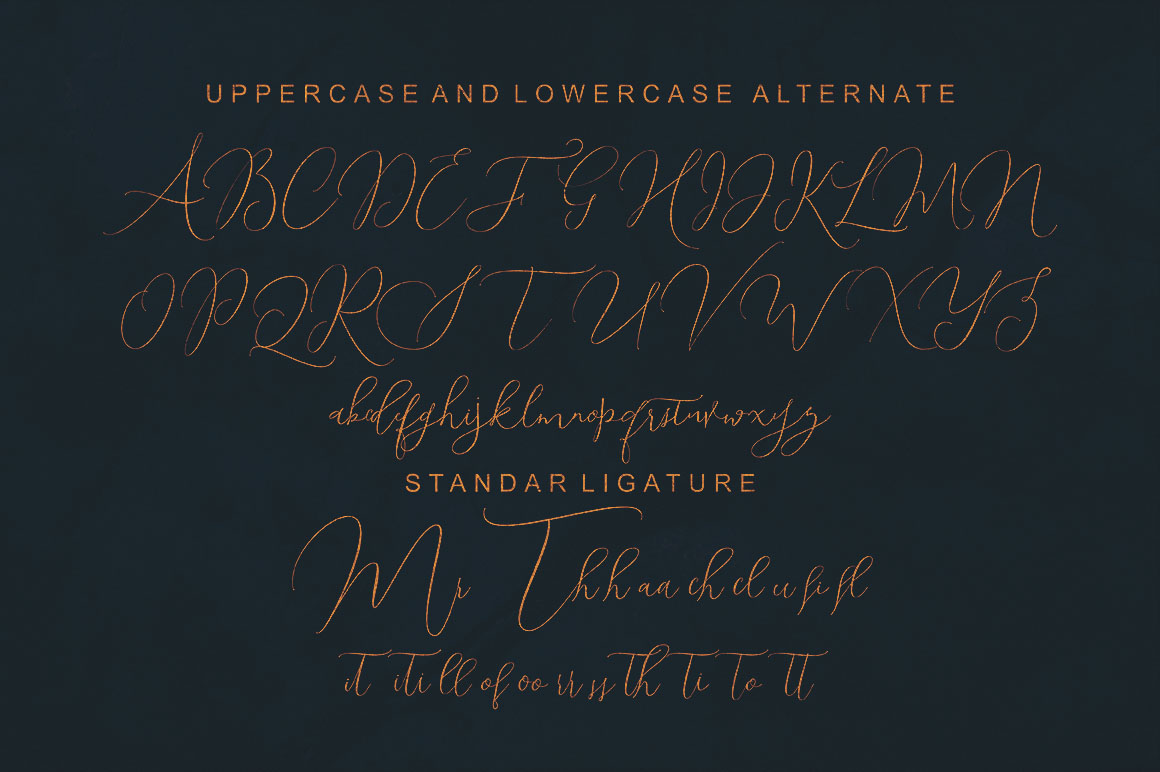 UPPERCASE AND LOWERCASE ALTERNATE
A B C D E F G H I J K L M N
O P Q R S T U V W X Y Z
a b c d e f g h i j k l m n o p q r s t u v w x y z
STANDAR LIGATURE
Mr Th h aa ch cl u fi fl
it iti ll of oo rr ss th ti to tt